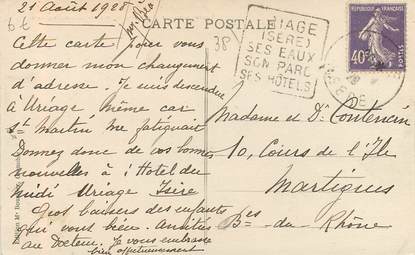 21 Août 1928
6 E
38
CARTE POSTALE
Cette carte pour vous
donner mon changement
d'adresse. Je suis descendue
à Uriage même car
St Martin me fatiguait
Donnez donc de vos bonnes
nouvelles à l'Hotel du
midi Uriage Isère
Gros baisers des enfants
qui vous bien. Amitiés
au Docteur. Je vous embrasse
bien affectueusement
URIAGE
(ISÈRE)
SES EAUX
SON PARC
SES HÔTELS
RÉPUBLIQUE FRANÇAISE
40c
ISERE
Madame et Dr
10, Cours de l'Ile
Martigues
Bes-du-Rhône